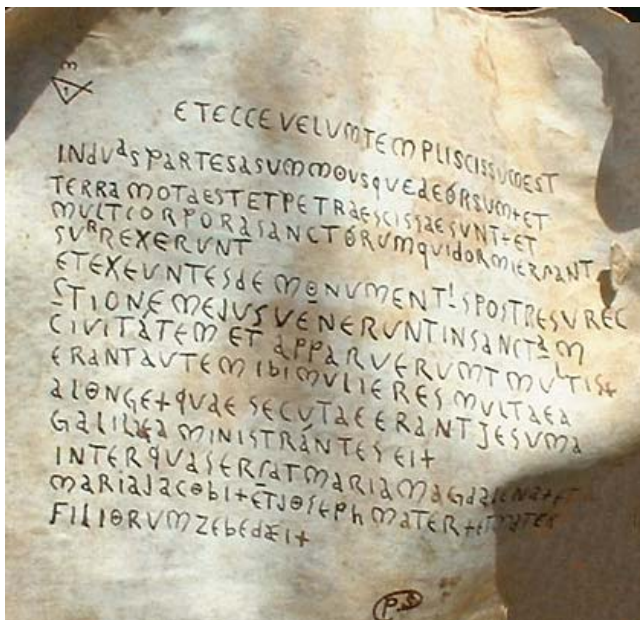 ETECCEVELUMTEMPLISCISSUMEST
INdUaSPARTESASUMMOUSqUEdEORSUM+ET
TERRaMOTaESTETPETRaESCISSaESUNT+ET
MULTCORPORaSANCTORUMqUIdORMIERANT
SURREXERUNT
ETEXEUNTESdEMONUMENTISPOSTRESUREC
STIONEMEJUSVENERUNTINSANCTaM
CIVITATEMETaPPARUERUMTMULTIS+
ERANTAUTEMIbIMULIERESMULTAEA
aLONGE+qUAESECUTAEERANTJESUMa
GaLILaEaMINISTRANTESEI+
INTERqUASERRaTMARIAMaGdaLENa+ET
MARIAJACObI+ETJOSEPhMATER+ETMATER
FILIORUMZEbEdÆI+
P.S